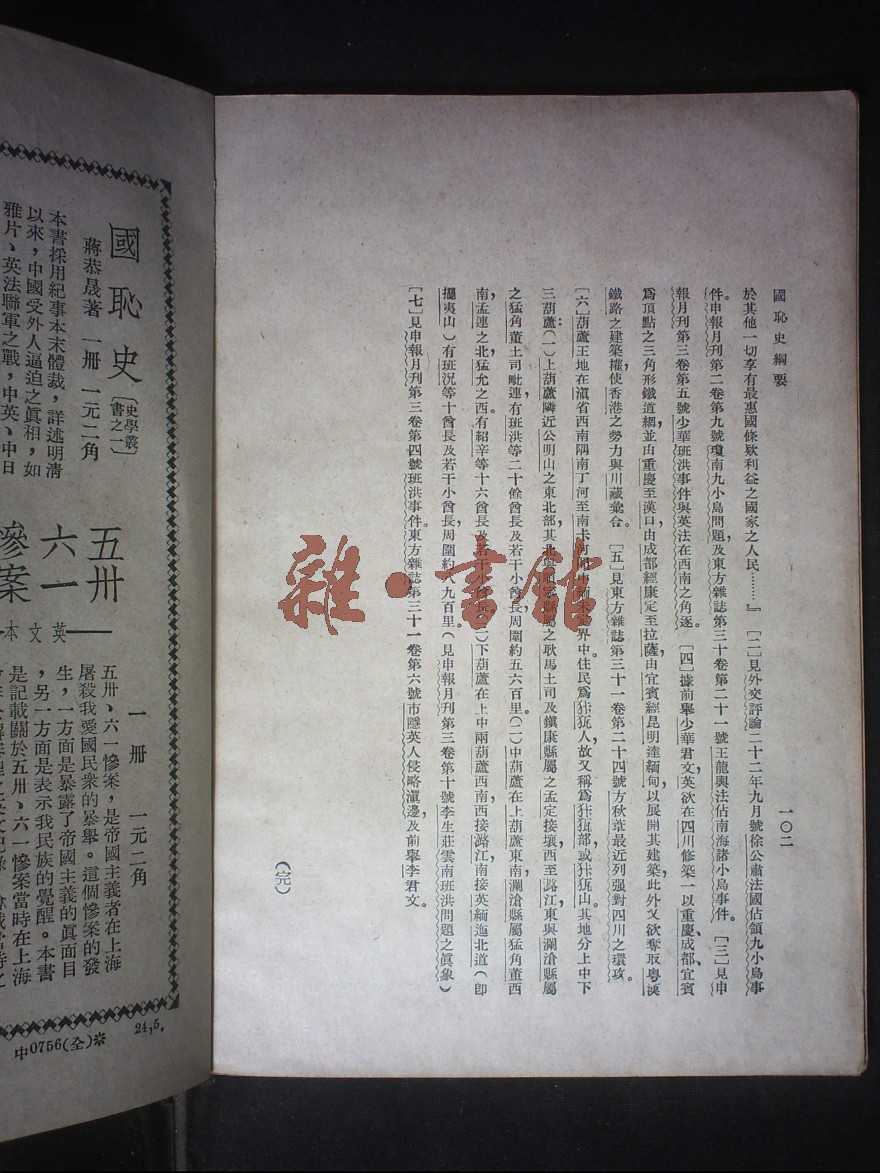 國恥史綱要
一〇二
於其他一切享有最惠國條欵利益之國家之人民……』　[二]見外交評論二十二年九月號徐公肅法國佔領九小島事
件。申報月刊第二卷第九號瓊南九小島問題，及東方雜誌第三十卷第二十一號王龍輿法佔南海諸小島事件。　[三]見申
報月刊第三卷第五號少華班洪事件與英法在西南之角逐。　[四]據前舉少華君文，英欲在四川修築一以重慶、成都、宜賓
爲頂點之三角形鐵道網，並由重慶至漢口，由成都經康定至拉薩，由宜賓經昆明達緬甸，以展開其建築，此外又欲奪取粵漢
鐵路之建築權，使香港之勢力與川藏彙合。　[五]見東方雜誌第三十一卷第二十四號方秋葦最近列强對四川之環攻。
[六]葫蘆王地在滇省西南隅南丁河至南卡河間中緬未定界中。住民爲
人，故又稱爲
部或
山。其地分上中下
三葫蘆：(一)上葫蘆隣近公明山之東北部，其北與順寧縣屬之耿馬土司及鎭康縣屬之孟定接壤，西至潞江，東與瀾滄縣屬
之猛角董土司毗連，有班洪等二十餘酋長及若干小酋長，周圍約五六百里。(二)中葫蘆在上葫蘆東南，瀾滄縣屬猛角董西
南，孟連之北，猛允之西。有紹辛等十六酋長及若干小酋長。
下葫蘆在上中兩葫蘆西南，西接潞江，南接英緬迤北道(卽
擺夷山)有班况等十酋長及若干小酋長，周圍約八九百里。(見申報月刊第三卷第十號李生莊雲南班洪問題之眞象)
[七]見申報月刊第三卷第四號班洪事件。東方雜誌第三十一卷第六號市隱英人侵略滇邊，及前舉李君文。
(完)
雜·書館
五卅
六一
慘案
英文本
一册　一元二角
五卅、六一慘案，是帝國主義者在上海
屠殺我愛國民衆的暴舉。這個慘案的發
生，一方面是暴露了帝國主義的眞面目
，另一方面是表示我民族的覺醒。本書
是記載關於五卅、六一慘案當時在上海
國恥史
[史學叢
書之一]
蔣恭晟著　一册　一元二角
本書採用紀事本末體裁，詳述明清
以來，中國受外人逼迫之眞相，如
雅片、英法聯軍之戰，中英、中日
中0756(全)※
24,5.